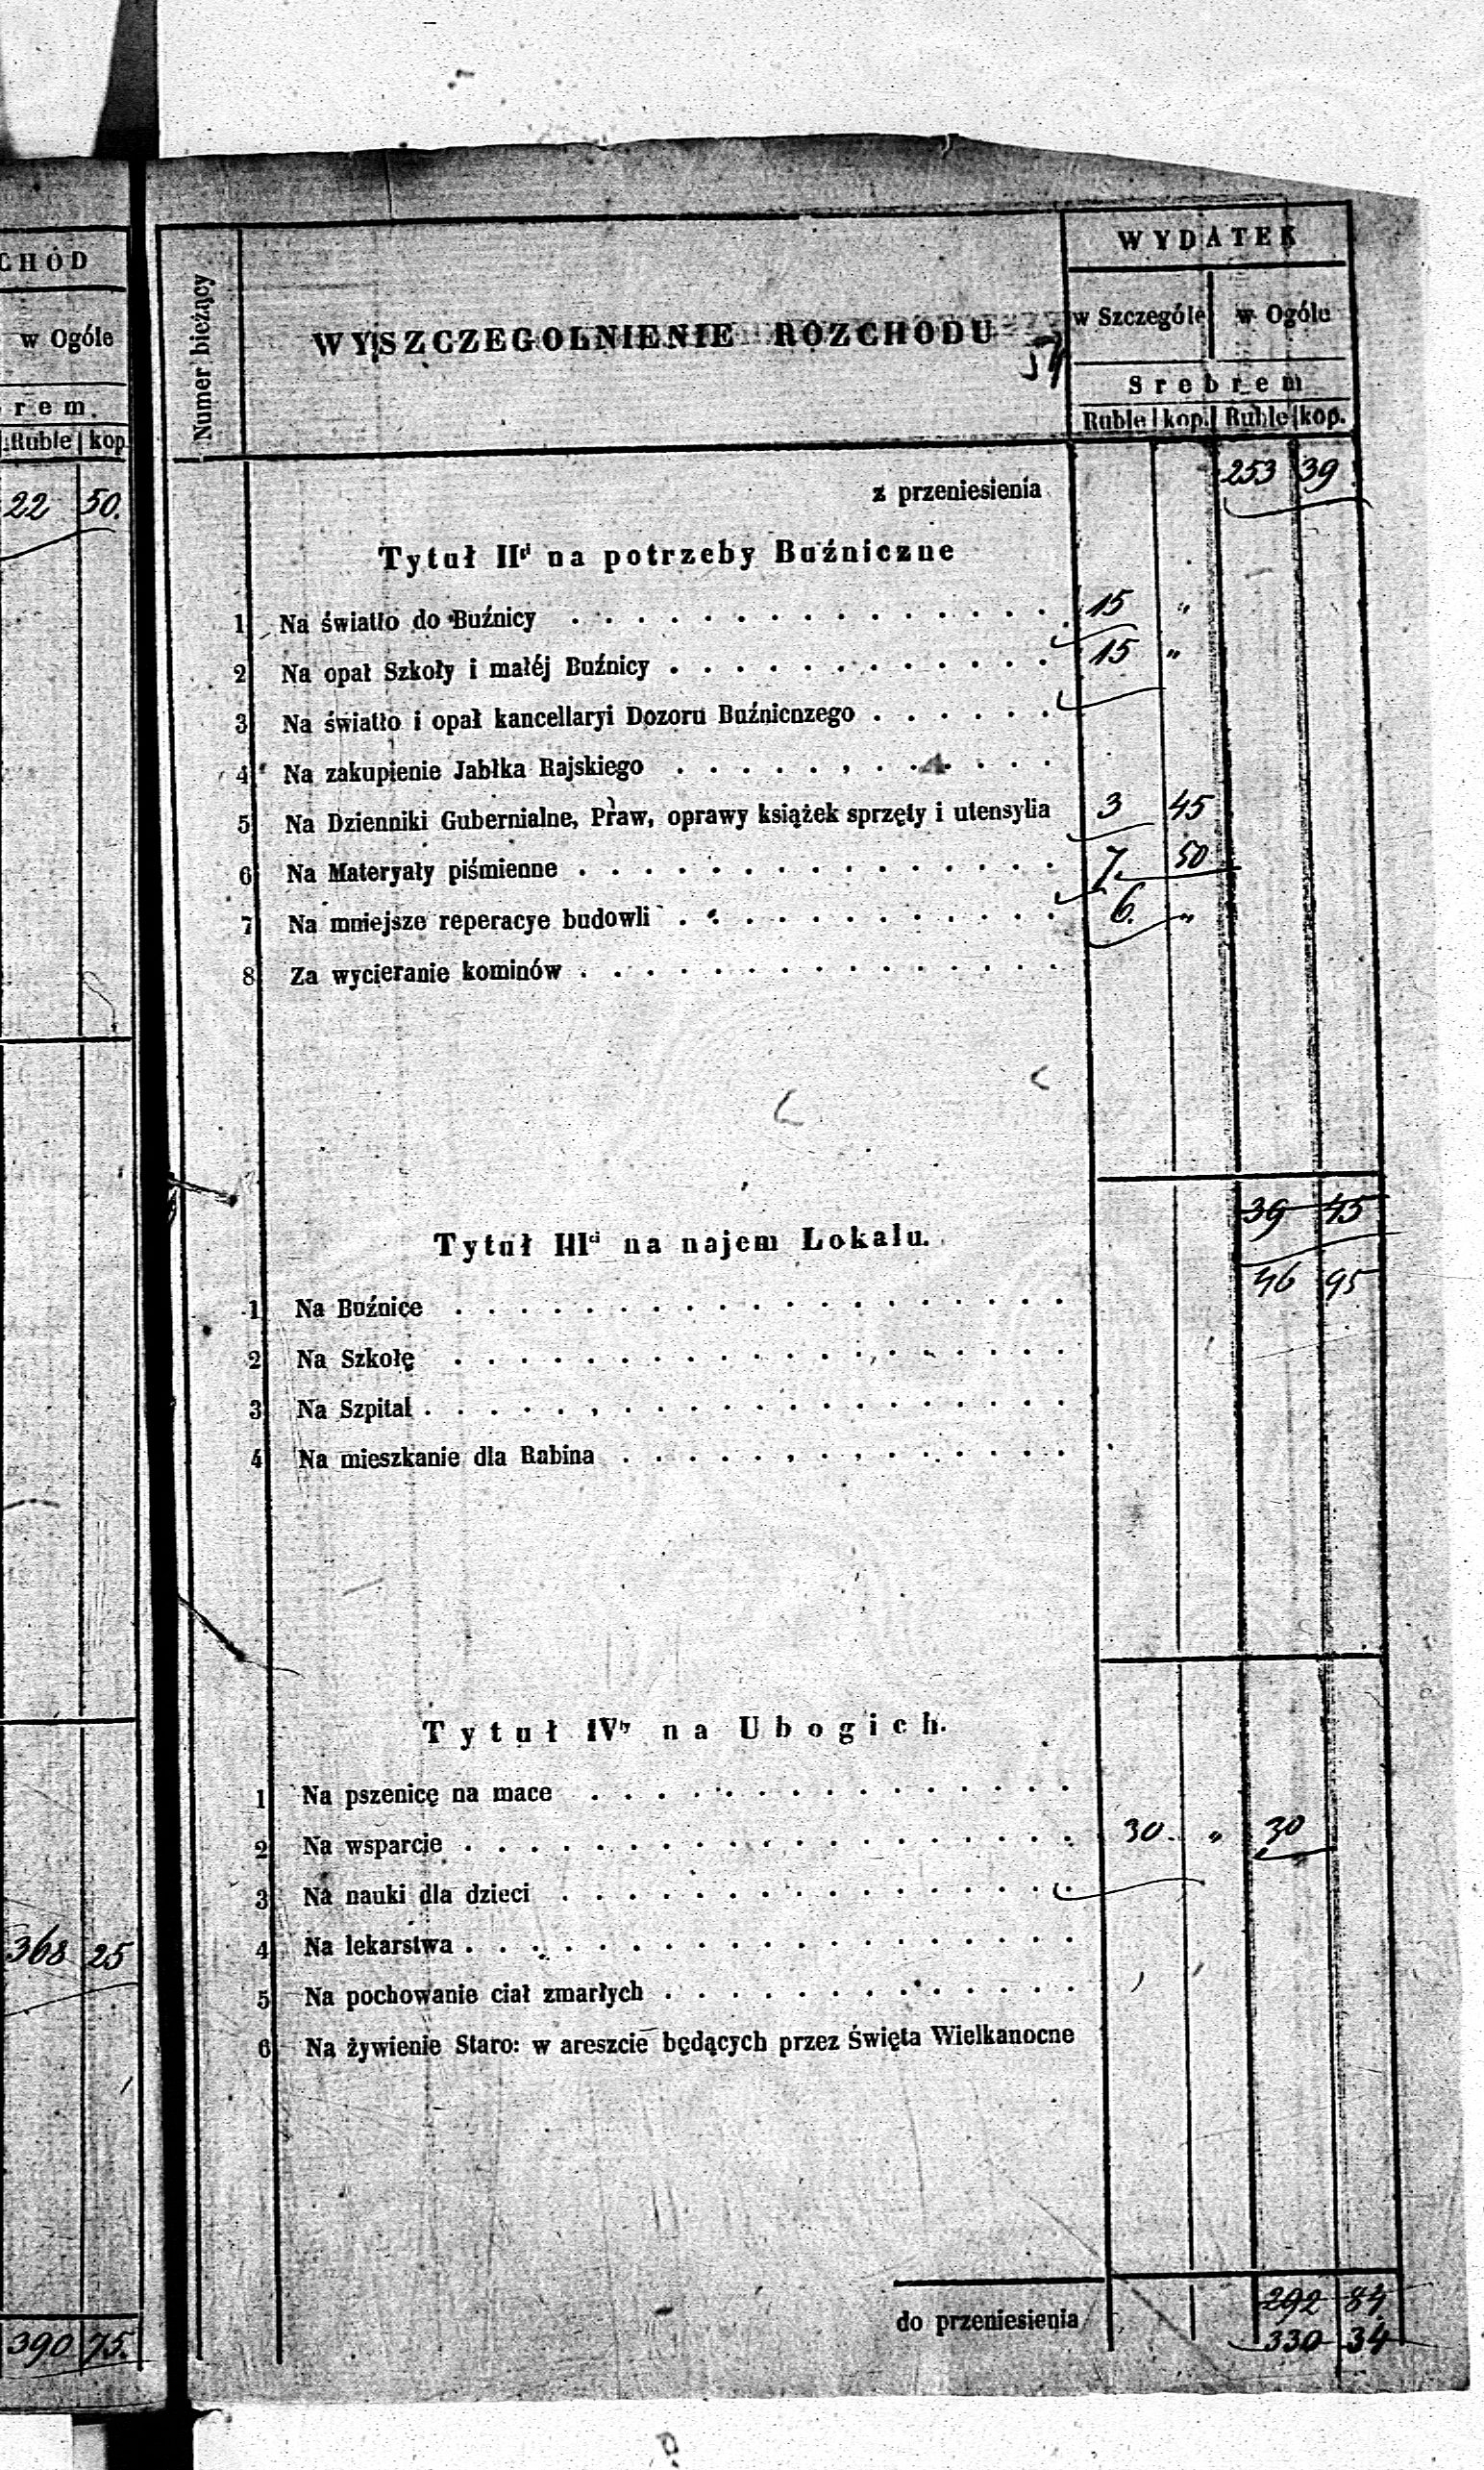 CHÓD
w Ogóle
rem.
Ruble kop
22 50.
368 25
390 75.
Numer bieżący
WYSZCZEGOLNIENIE ROZCHODU
WYDATEK
w Szczególe w Ogóle
Srebrem
Ruble kop. Ruble kop.
z przeniesienia 253 39
Tytuł IIgi na potrzeby Buźniczne
1 Na światło do Buźnicy 15 "
2 Na opał Szkoły i małéj Buźnicy 15 "
3 Na światło i opał kancellaryi Dozoru Buźniczego
4 Na zakupienie Jabłka Rajskiego
5 Na Dzienniki Gubernialne, Praw, oprawy książek sprzęty i utensylia 3 45
6 Na Materyały piśmienne 7. 50
7 Na mniejsze reperacye budowli 6. "
8 Za wycieranie kominów
39 45
Tytuł IIIci na najem Lokalu.
46 95
1 Na Buźnice
2 Na Szkołę
3 Na Szpital
4 Na mieszkanie dla Rabina
Tytuł IVty na Ubogich.
1 Na pszenicę na mace
2 Na wsparcie 30. " 30
3 Na nauki dla dzieci
4 Na lekarstwa
5 Na pochowanie ciał zmarłych
6 Na żywienie Staro: w areszcie będących przez Święta Wielkanocne
292 84
do przeniesienia 330 34